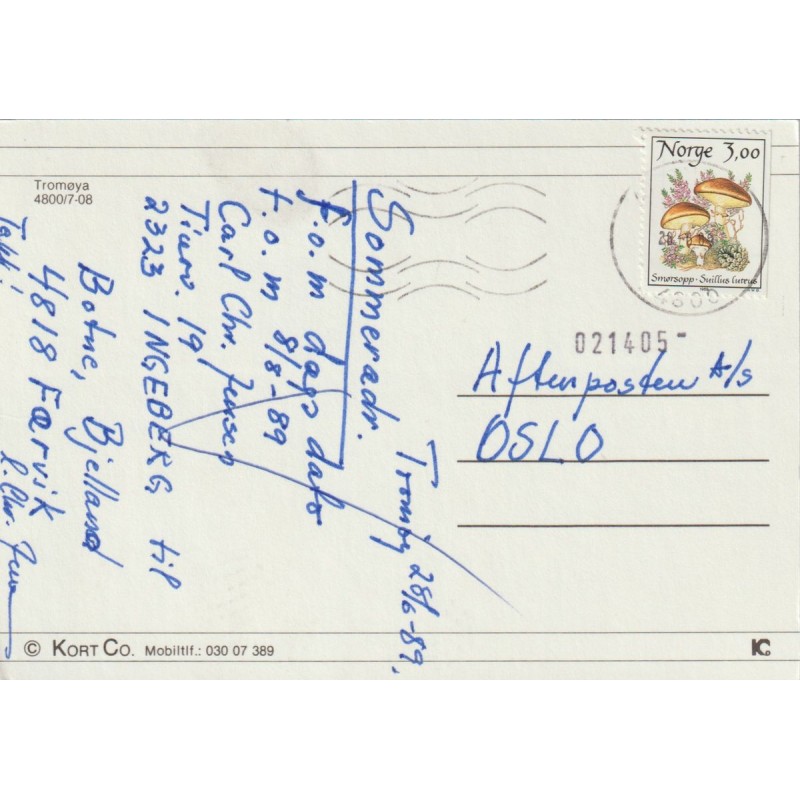 Tromøya
4800/7-08
Norge 3,00
Smørsopp · Suillus luteus
28
4800
021405-
Aftenposten A/s
OSLO
Tromøy 28/6-89.
Sommeradr.
f.o.m dags dato
t.o.m 8/8-89
Carl Chr. Jensen
Tiurv. 19
2323 INGEBERG til
Botne, Bjelland
4818 Færvik
Takk!
C. Chr. Jensen
© KORT CO. Mobiltlf.: 030 07 389
KC